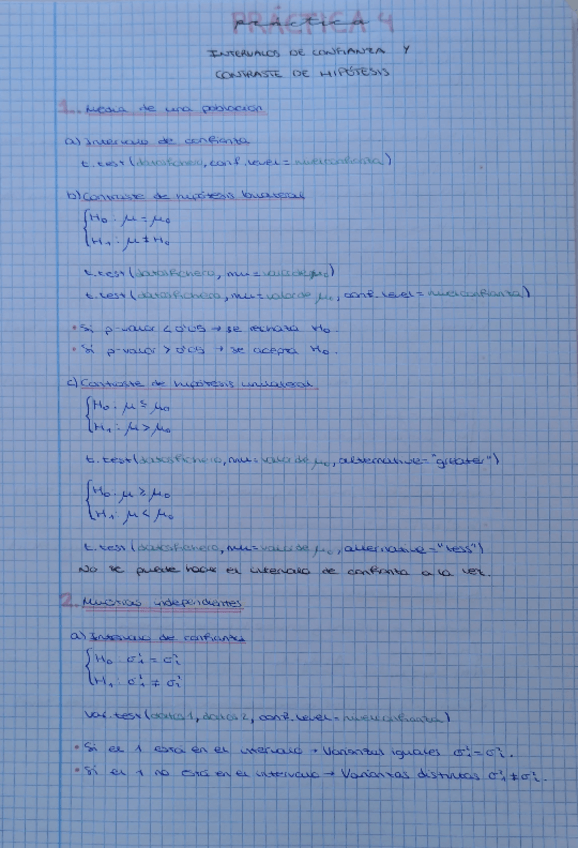 PRÁCTICA 4
práctica
INTERVALOS DE CONFIANZA Y
CONTRASTE DE HIPÓTESIS
1. Media de una población
a) Intervalo de confianza
t.test(datosfichero, conf.level = nivelconfianza)
b) Contraste de hipótesis bilateral
H₀: μ = μ₀
H₁: μ ≠ H₀
t.test(datosfichero, mu = valor de μ₀)
t.test(datosfichero, mu = valor de μ₀, conf.level = nivelconfianza)
• Si p-valor < 0'05 → se rechaza H₀.
• Si p-valor > 0'05 → se acepta H₀.
c) Contraste de hipótesis unilateral
H₀: μ ≤ μ₀
H₁: μ > μ₀
t.test(datosfichero, mu = valor de μ₀, alternative = "greater")
H₀: μ ≥ μ₀
H₁: μ < μ₀
t.test(datosfichero, mu = valor de μ₀, alternative = "less")
No se puede hacer el intervalo de confianza a la vez.
2. Muestras independientes
a) Intervalo de confianza
H₀: σ²₁ = σ²₂
H₁: σ²₁ ≠ σ²₂
var.test(datos1, datos2, conf.level = nivelconfianza)
• Si el 1 está en el intervalo → Varianzas iguales σ²₁ = σ²₂.
• Si el 1 no está en el intervalo → Varianzas distintas σ²₁ ≠ σ²₂.